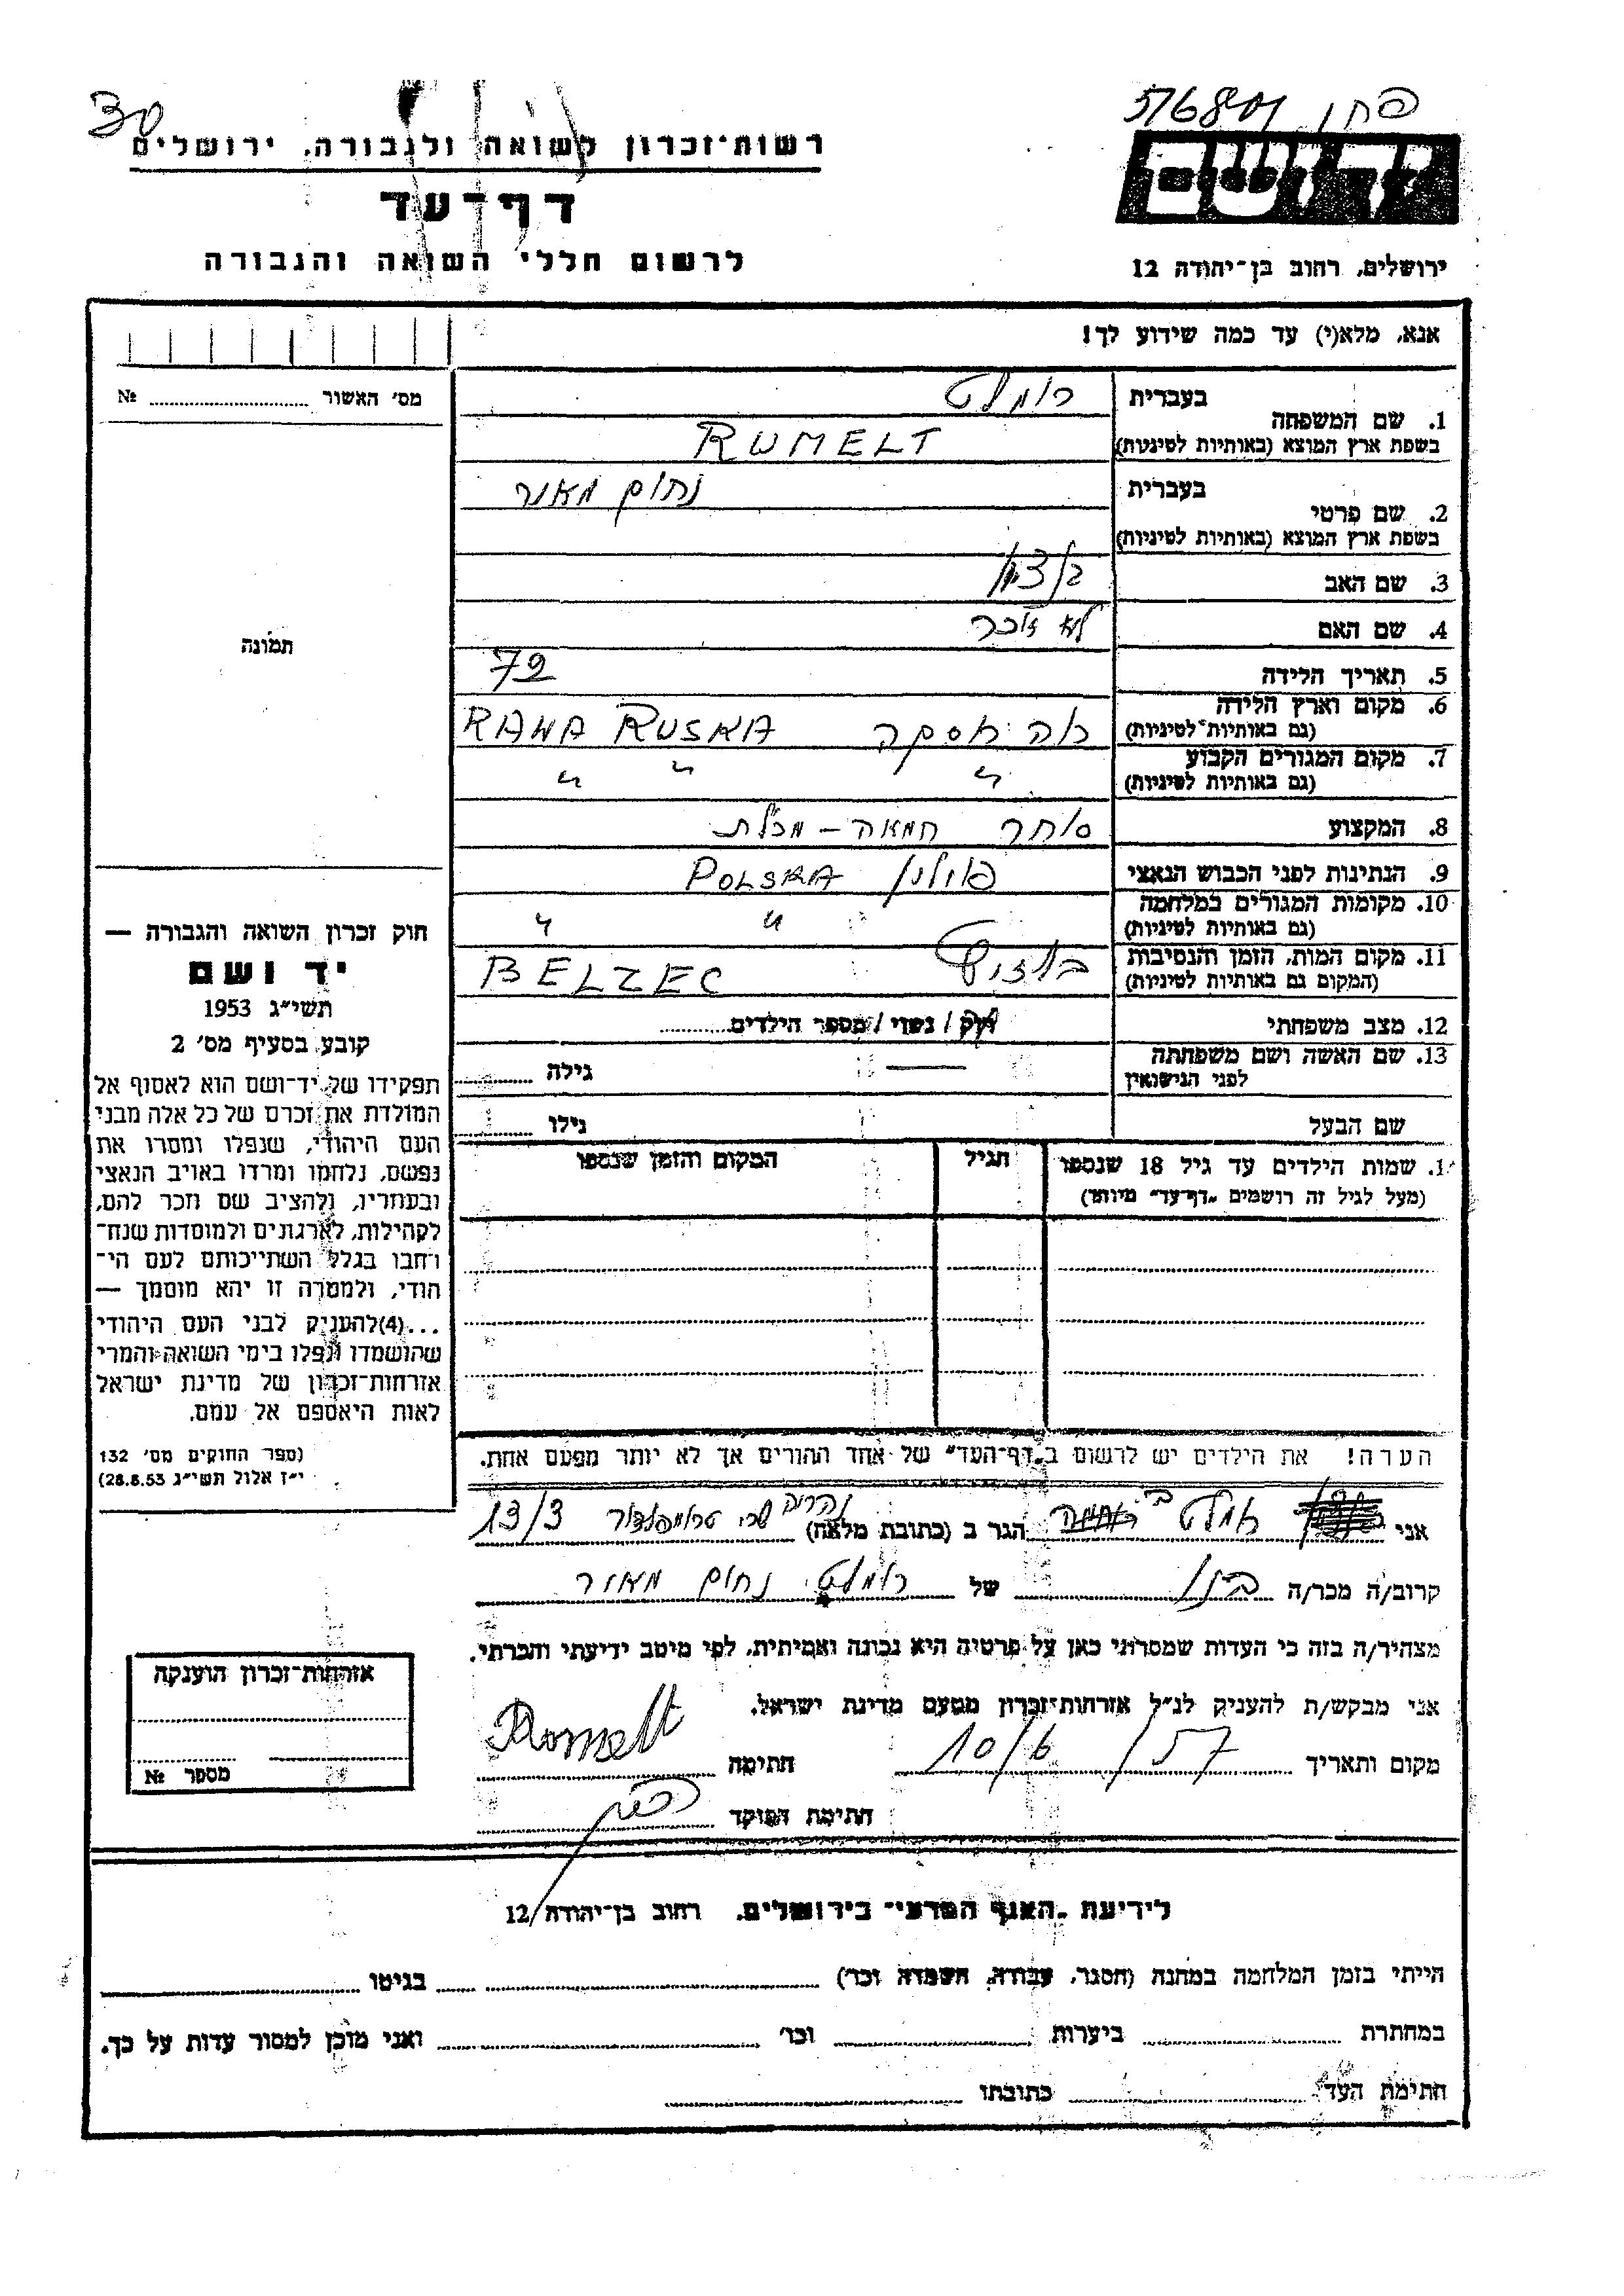 30
576801
רשות־זכרון לשואה ולגבורה, ירושלים
יד ושם
דף־עד
לרשום חללי השואה והגבורה
ירושלים, רחוב בן־יהודה 12
אנא, מלא(י) עד כמה שידוע לך!
מס׳ האשור № ........
1. שם המשפחה
בעברית רומלט
בשפת ארץ המוצא (באותיות לטיניות) RUMELT
2. שם פרטי
בעברית נחום מאור
בשפת ארץ המוצא (באותיות לטיניות)
3. שם האב
4. שם האם לא זוכר
5. תאריך הלידה 72
6. מקום וארץ הלידה
(גם באותיות לטיניות) RAWA RUSKA
7. מקום המגורים הקבוע
(גם באותיות לטיניות) " " "
8. המקצוע סוחר חמאה – מכולת
9. הנתינות לפני הכבוש הנאצי פולין POLSKA
10. מקומות המגורים במלחמה
(גם באותיות לטיניות) " "
11. מקום המות, הזמן והנסיבות
(המקום גם באותיות לטיניות) BELZEC
12. מצב משפחתי רוק / נשוי / מספר הילדים........
13. שם האשה ושם משפחתה
לפני הנישואין — גילה ........
שם הבעל גילו ........
1. שמות הילדים עד גיל 18 שנספו
(מעל לגיל זה רושמים „דף־עד" מיוחד)
הגיל
המקום והזמן שנספו
תמונה
חוק זכרון השואה והגבורה —
יד ושם
תשי״ג 1953
קובע בסעיף מס׳ 2
תפקידו של יד־ושם הוא לאסוף אל
המולדת את זכרם של כל אלה מבני
העם היהודי, שנפלו ומסרו את
נפשם, נלחמו ומרדו באויב הנאצי
ובעוזריו, ולהציב שם וזכר להם,
לקהילות, לארגונים ולמוסדות שנח־
רחבו בגלל השתייכותם לעם הי־
הודי, ולמטרה זו יהא מוסמך —
...(4)להעניק לבני העם היהודי
שהושמדו ונפלו בימי השואה והמרי
אזרחות־זכרון של מדינת ישראל
לאות היאספם אל עמם.
(ספר החוקים מס׳ 132
י״ז אלול תשי״ג 28.8.53)
הערה! את הילדים יש לרשום ב„דף־העד" של אחד ההורים אך לא יותר מפעם אחת.
אני רומלט הגר ב (כתובת מלאה) נהריה שד׳ טרומפלדור 13/3
קרוב/ה מכר/ה בנו של רומלט נחום מאור
מצהיר/ה בזה כי העדות שמסרתי כאן על פרטיה היא נכונה ואמיתית, לפי מיטב ידיעתי והכרתי.
אני מבקש/ת להעניק לנ״ל אזרחות־זכרון מטעם מדינת ישראל.
מקום ותאריך 10/6/57 חתימה Romelt
חתימת הפוקד
אזרחות־זכרון הוענקה
מספר №
לידיעת „האגף המדעי" בירושלים, רחוב בן־יהודה 12
הייתי בזמן המלחמה במחנה (הסגר, עבודה, השמדה וכו׳) ........ בגיטו ........
במחתרת ........ ביערות ........ וכו׳ ........ ואני מוכן למסור עדות על כך.
חתימת העד ........ כתובתו ........